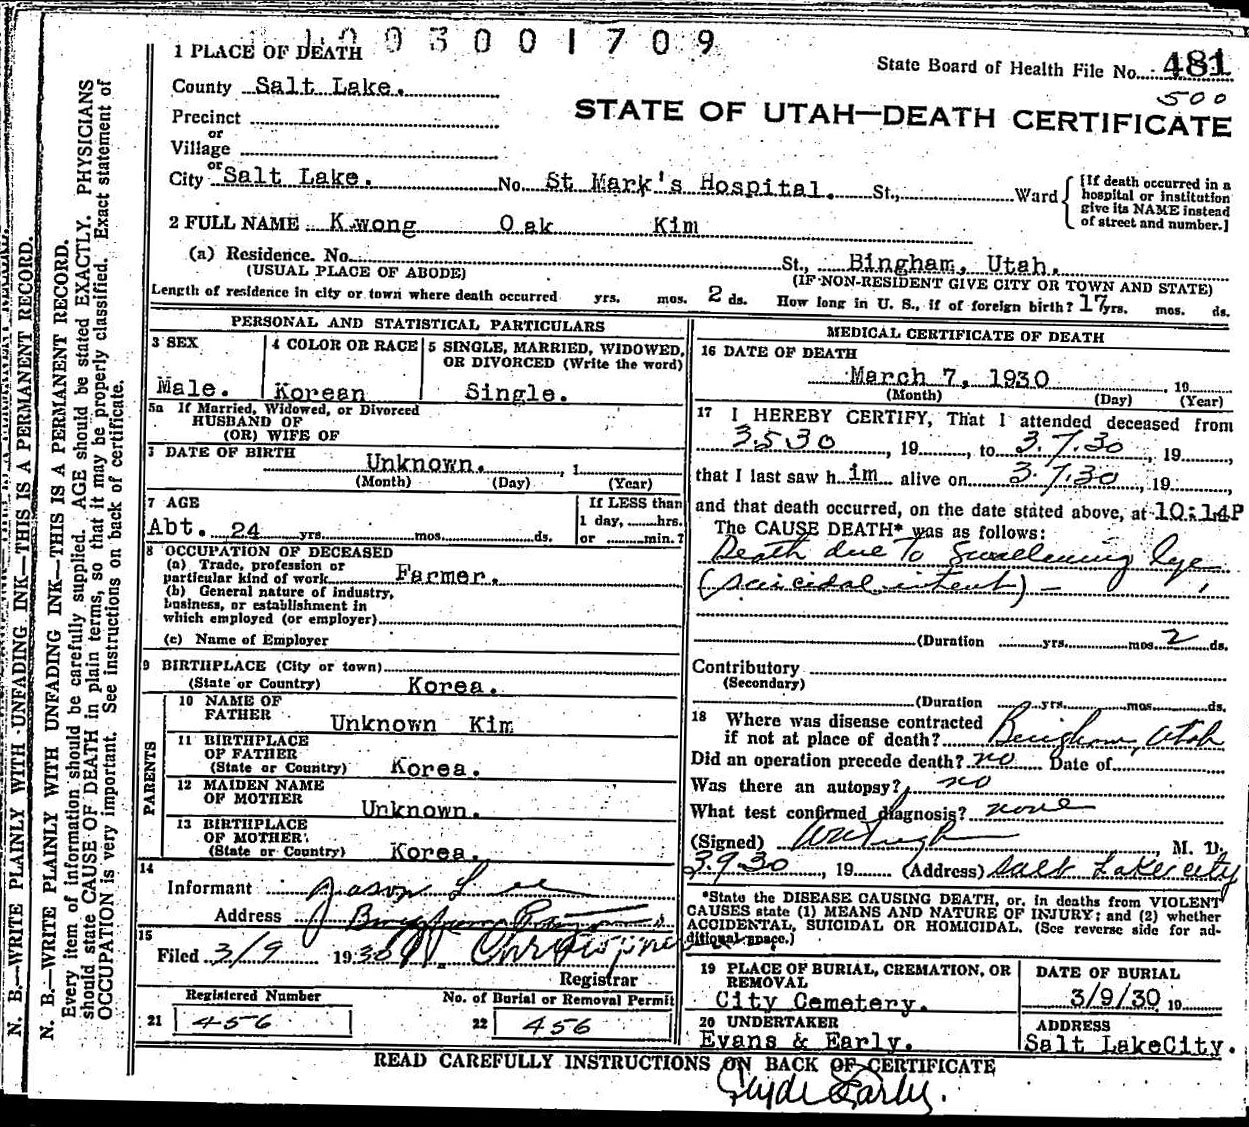 1003001709
1 PLACE OF DEATH
State Board of Health File No. 481
County Salt Lake.
500
STATE OF UTAH—DEATH CERTIFICATE
Precinct
or
Village
or
City Salt Lake. No. St Mark's Hospital. St., Ward
[If death occurred in a hospital or institution give its NAME instead of street and number.]
2 FULL NAME Kwong Oak Kim
(a) Residence. No. St., Bingham, Utah.
(USUAL PLACE OF ABODE) (IF NON-RESIDENT GIVE CITY OR TOWN AND STATE)
Length of residence in city or town where death occurred yrs. mos. 2 ds. How long in U. S., if of foreign birth? 17 yrs. mos. ds.
PERSONAL AND STATISTICAL PARTICULARS
3 SEX
Male.
4 COLOR OR RACE
Korean
5 SINGLE, MARRIED, WIDOWED, OR DIVORCED (Write the word)
Single.
5a If Married, Widowed, or Divorced
HUSBAND OF
(OR) WIFE OF
DATE OF BIRTH
Unknown. , 1
(Month) (Day) (Year)
7 AGE
Abt. 24 yrs. mos. ds.
If LESS than
1 day, hrs.
or min.?
8 OCCUPATION OF DECEASED
(a) Trade, profession or
particular kind of work Farmer.
(b) General nature of industry,
business, or establishment in
which employed (or employer)
(c) Name of Employer
9 BIRTHPLACE (City or town)
(State or Country) Korea.
PARENTS
10 NAME OF
FATHER Unknown Kim
11 BIRTHPLACE
OF FATHER
(State or Country) Korea.
12 MAIDEN NAME
OF MOTHER Unknown.
13 BIRTHPLACE
OF MOTHER
(State or Country) Korea.
14
Informant Jason Lee
Address Bingham
15
Filed 3/9 1930
Registrar
Registered Number
21 456
No. of Burial or Removal Permit
22 456
MEDICAL CERTIFICATE OF DEATH
16 DATE OF DEATH
March 7, 1930 19
(Month) (Day) (Year)
17 I HEREBY CERTIFY, That I attended deceased from
3.5.30, 19, to 3.7.30, 19,
that I last saw h im alive on 3.7.30, 19,
and that death occurred, on the date stated above, at 10:14P
The CAUSE DEATH* was as follows:
Death due to Swallowing lye
(suicidal intent) -
(Duration yrs. mos. 2 ds.
Contributory
(Secondary)
(Duration yrs. mos. ds.
18 Where was disease contracted
if not at place of death? Bingham, Utah
Did an operation precede death? no Date of
Was there an autopsy? no
What test confirmed diagnosis? none
(Signed) , M. D.
3.9.30, 19 (Address) Salt Lake City
*State the DISEASE CAUSING DEATH, or, in deaths from VIOLENT
CAUSES state (1) MEANS AND NATURE OF INJURY; and (2) whether
ACCIDENTAL, SUICIDAL OR HOMICIDAL. (See reverse side for ad-
ditional space.)
19 PLACE OF BURIAL, CREMATION, OR
REMOVAL
City Cemetery.
DATE OF BURIAL
3/9/30 19
20 UNDERTAKER
Evans & Early.
ADDRESS
Salt LakeCity.
READ CAREFULLY INSTRUCTIONS ON BACK OF CERTIFICATE
Clyde Early.
N. B.—WRITE PLAINLY WITH UNFADING INK—THIS IS A PERMANENT RECORD.
N. B.—WRITE PLAINLY WITH UNFADING INK—THIS IS A PERMANENT RECORD.
Every item of information should be carefully supplied. AGE should be stated EXACTLY. PHYSICIANS
should state CAUSE OF DEATH in plain terms, so that it may be properly classified. Exact statement of
OCCUPATION is very important. See instructions on back of certificate.